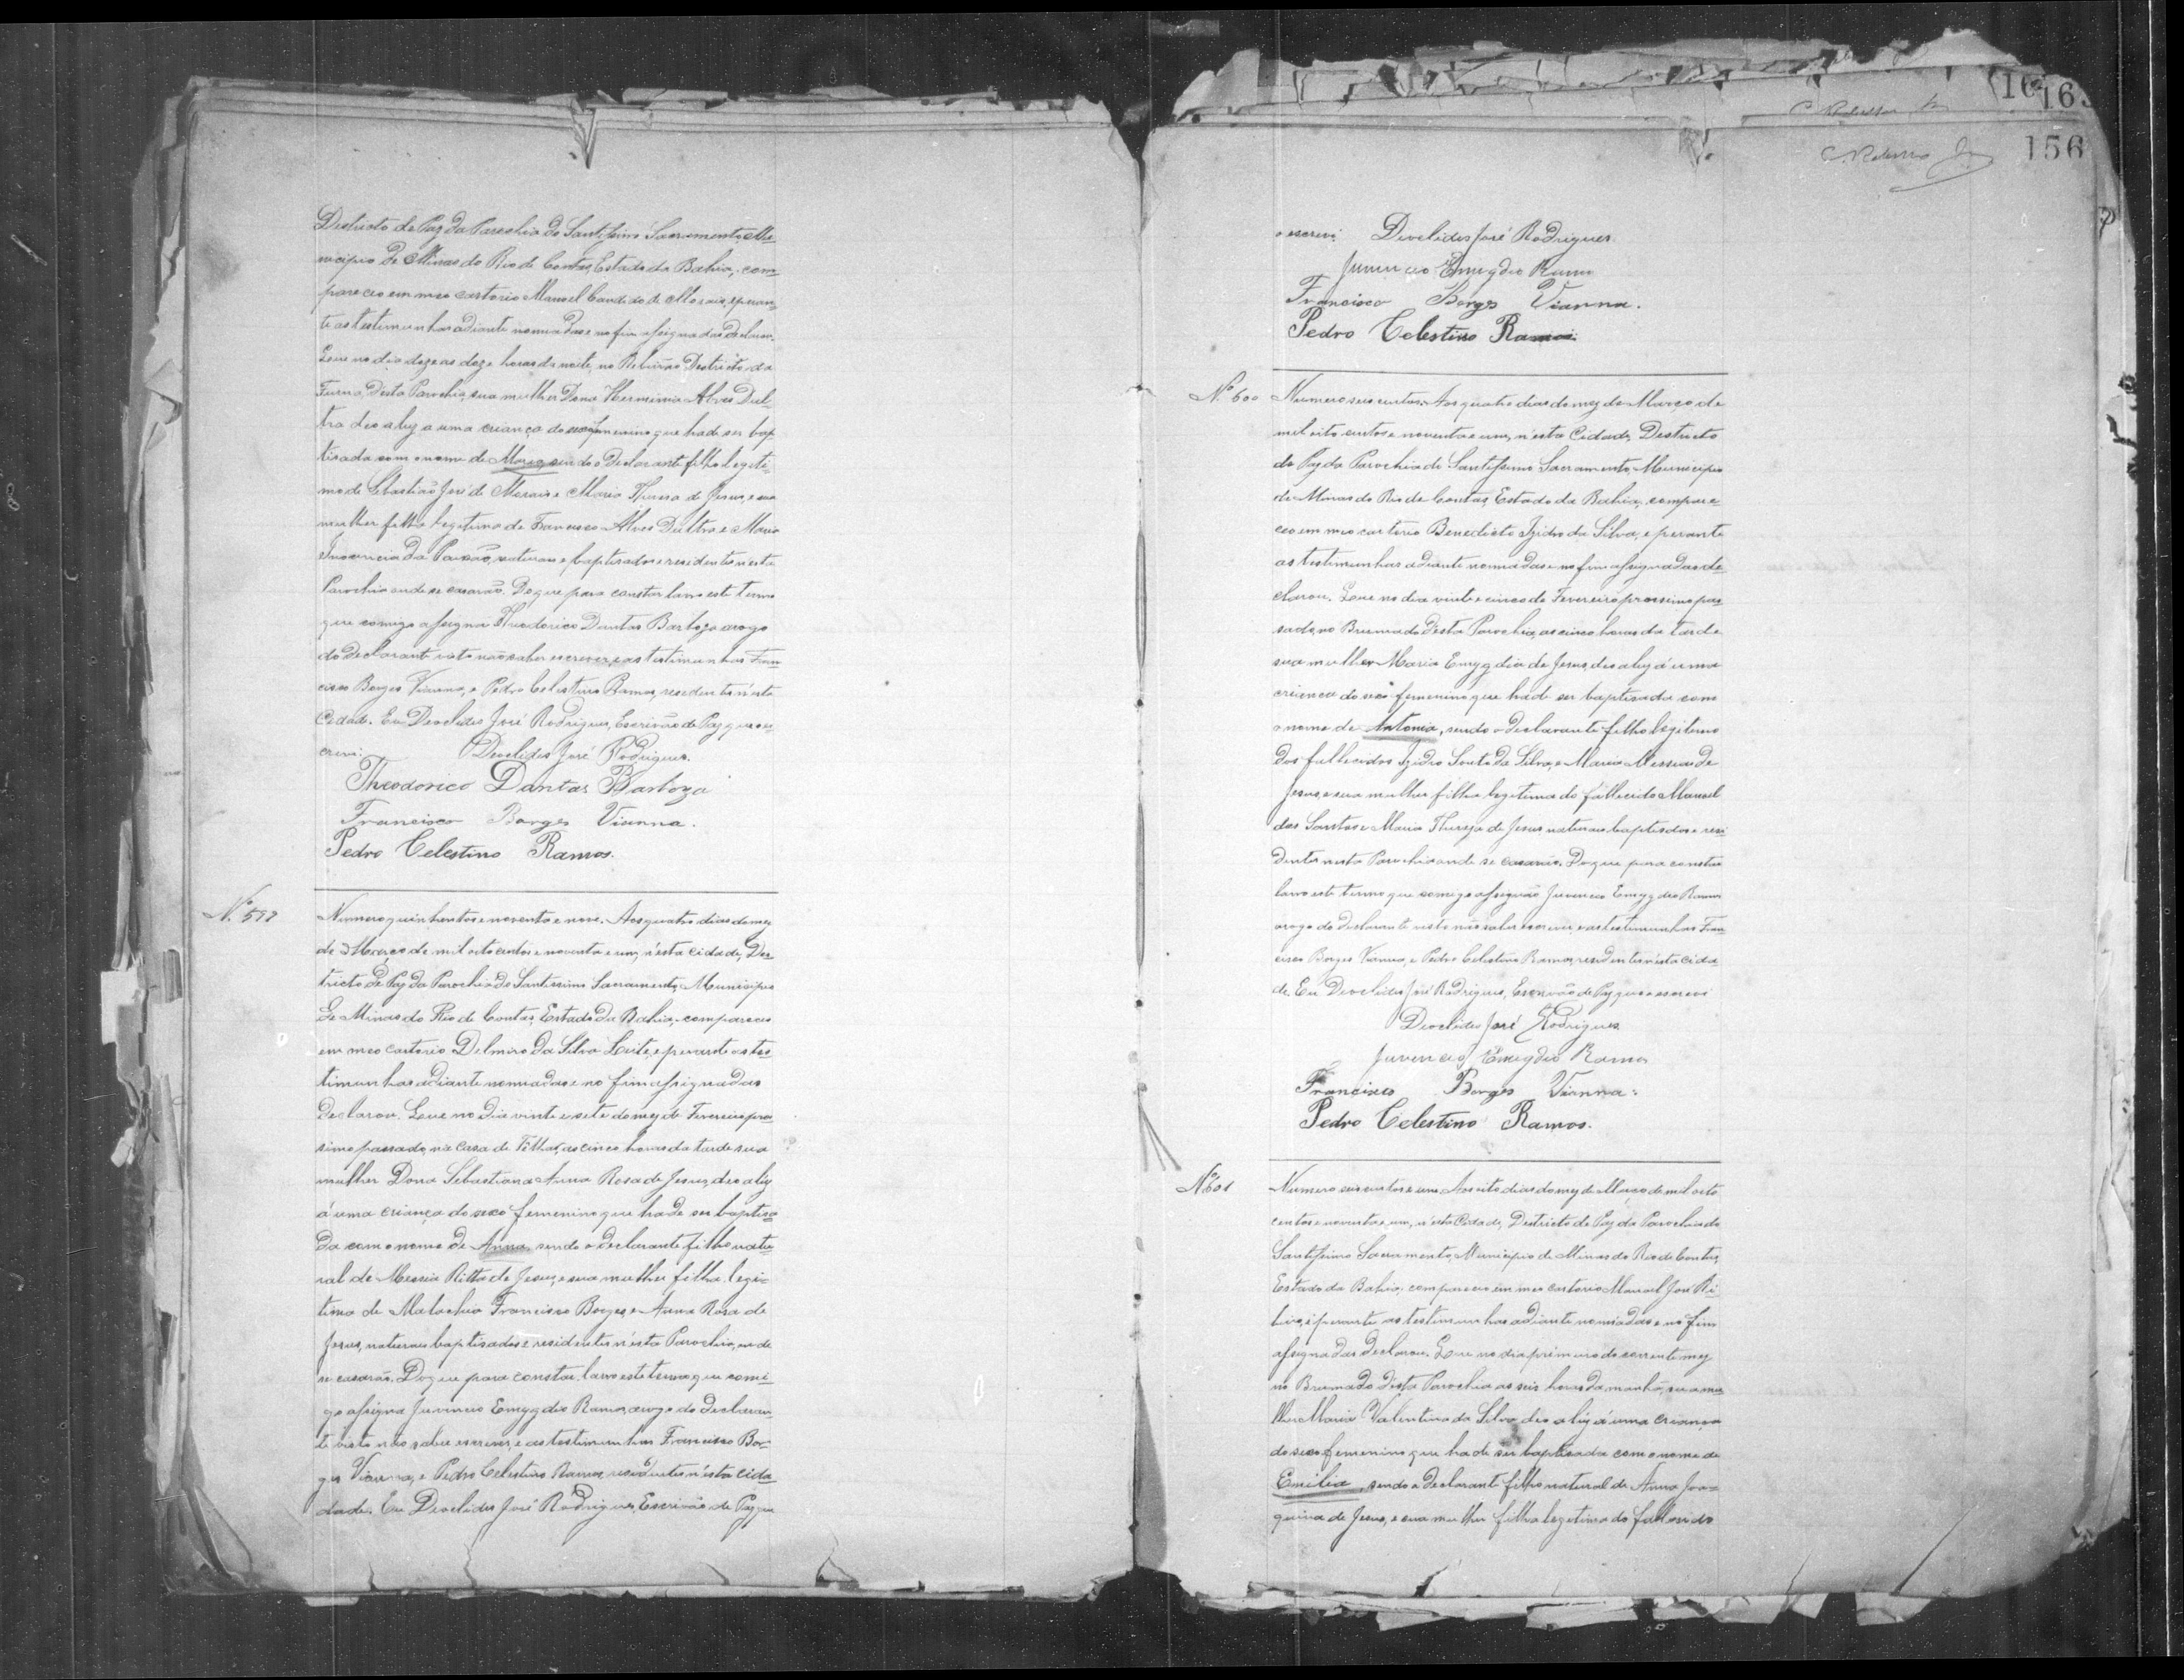 Destricto de Paz da Parochia do Santissimo Sacramento, Mu-
nicipio de Minas do Rio de Contas, Estado da Bahia, com-
pareceo em meo cartorio Manoel Candido de Moraes, e peran-
te as testimunhas adiante nomiadas e no fim assignadas declarou.
Que no dia doze as doze horas da noite, no Ribeirão Destricto da
Furna, desta Parochia, sua mulher Dona Herminia Alves Dul-
tra deo a luz a uma criança do sexo femenino que hade ser bap-
tisada com o nome de Maria, sendo o declarante filho legiti-
mo de Sebastião José de Moraes e Maria Thereza de Jesus, e sua
mulher filha legitima de Francisco Alves Dultra e Maria
Inocencia da Paixão, naturaes e baptisados e residentes n'esta
Parochia onde se casarão. Do que para constar lavro este termo
que comigo assigna Theodorico Dantas Barboza a rogo
do declarante visto não saber escrever, e as testimunhas Fran-
cisco Borges Vianna, e Pedro Celestino Ramos, residentes n'esta
Cidade. Eu Deoclides José Rodrigues, Escrivão de Paz que o es-
crevi. Deoclides José Rodrigues.
Theodorico Dantas Barboza
Francisco Borges Vianna.
Pedro Celestino Ramos.
Nº 599
Numero quinhentos e noventa e nove. Aos quatro dias do mez
de Março de mil oito centos e noventa e um, n'esta cidade, Des-
tricto de Paz da Parochia do Santissimo Sacramento, Municipio
de Minas do Rio de Contas, Estado da Bahia, compareceo
em meo cartorio Delmiro da Silva Leite, e perante as tes-
timunhas adiante nomiadas e no fim assignadas
declarou. Que no dia vinte e sete do mez de Fevereiro pro-
simo passado, na Casa de Telhas, as cinco horas da tarde sua
mulher Dona Sebastiana Anna Rosa de Jesus, deo a luz
á uma criança do sexo femenino que hade ser baptisa-
da com o nome de Anna, sendo o declarante filho natu-
ral de Messia Ritta de Jesus, e sua mulher filha legi-
tima de Francisco Borges, e Anna Rosa de
Jesus, naturaes baptisados e residentes n'esta Parochia, onde
se casarão. Do que para constar, lavro este termo que comi-
go assigna Juvencio Emygdio Ramos, a rogo do declaran-
te visto não saber escrever, e as testimunhas Francisco Bor-
ges Vianna, e Pedro Celestino Ramos, residentes n'esta cida-
dade. Eu Deoclides José Rodrigues, Escrivão de Paz que
156
o escrevi. Deoclides José Rodrigues.
Juvencio Emygdio Ramos
Francisco Borges Vianna.
Pedro Celestino Ramos.
Nº 600
Numero seis centos. Aos quatro dias do mez de Março de
mil oito centos e noventa e um, n'esta Cidade, Destricto
de Paz da Parochia do Santissimo Sacramento, Municipio
de Minas do Rio de Contas, Estado da Bahia, compare-
ceo em meo cartorio Benedicto Izidro da Silva, e perante
as testimunhas adiante nomiadas e no fim assignadas de-
clarou. Que no dia vinte e cinco de Fevereiro prossimo pas-
sado, no Brumado d'esta Parochia, as cinco horas da tarde
sua mulher Maria Emygdia de Jesus, deo a luz á uma
criança do sexo femenino que hade ser baptisada com
o nome de Antonia, sendo o declarante filho legitimo
dos fallecidos Izidro Souto da Silva, e Maria Messias de
Jesus, e sua mulher filha legitima do fallecido Manoel
dos Santos e Maria Thereza de Jesus naturaes baptisados e resi-
dentes nesta Parochia onde se casarão. Do que para constar
lavro este termo que comigo assignão Juvencio Emygdio Ramos
a rogo do declarante visto não saber escrever, e as testimunhas Fran-
cisco Borges Vianna, e Pedro Celestino Ramos, residentes n'esta cida-
de. Eu Deoclides José Rodrigues, Escrivão de Paz que o escrevi
Deoclides José Rodrigues
Juvencio Emygdio Ramos
Francisco Borges Vianna.
Pedro Celestino Ramos.
Nº 601
Numero seis centos e um. Aos oito dias do mez de Março de mil oito
centos e noventa e um, n'esta Cidade, Destricto de Paz da Parochia do
Santissimo Sacramento, Municipio de Minas do Rio de Contas,
Estado da Bahia, compareceo em meo cartorio Manoel José Ri-
beiro, e perante as testimunhas adiante nomiadas e no fim
assignadas declarou. Que no dia primeiro do corrente mez
no Brumado d'esta Parochia as seis horas da manhã, sua mu-
lher Maria Valentina da Silva, deo a luz á uma criança
do sexo femenino que hade ser baptisada com o nome de
Emilia, sendo o declarante filho natural de Anna Joa-
quina de Jesus, e sua mulher filha legitima do fallecido